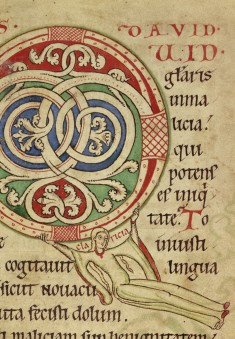 S. DAVID.
U.ID
glaris
inma
licia?
qui
potens
es iniq;
tate? To
CLARICIA
iniusti
cogitauit lingua
sicut nouacu
uta fecisti dolum.
maliciam sup benignitatem